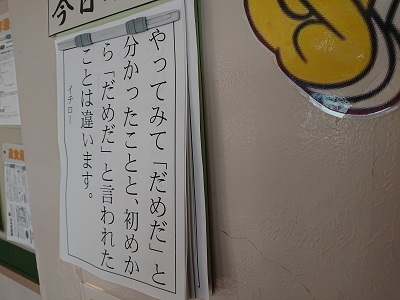 今日
やってみて「だめだ」と
分かったことと、初めか
ら「だめだ」と言われた
ことは違います。
イチロー